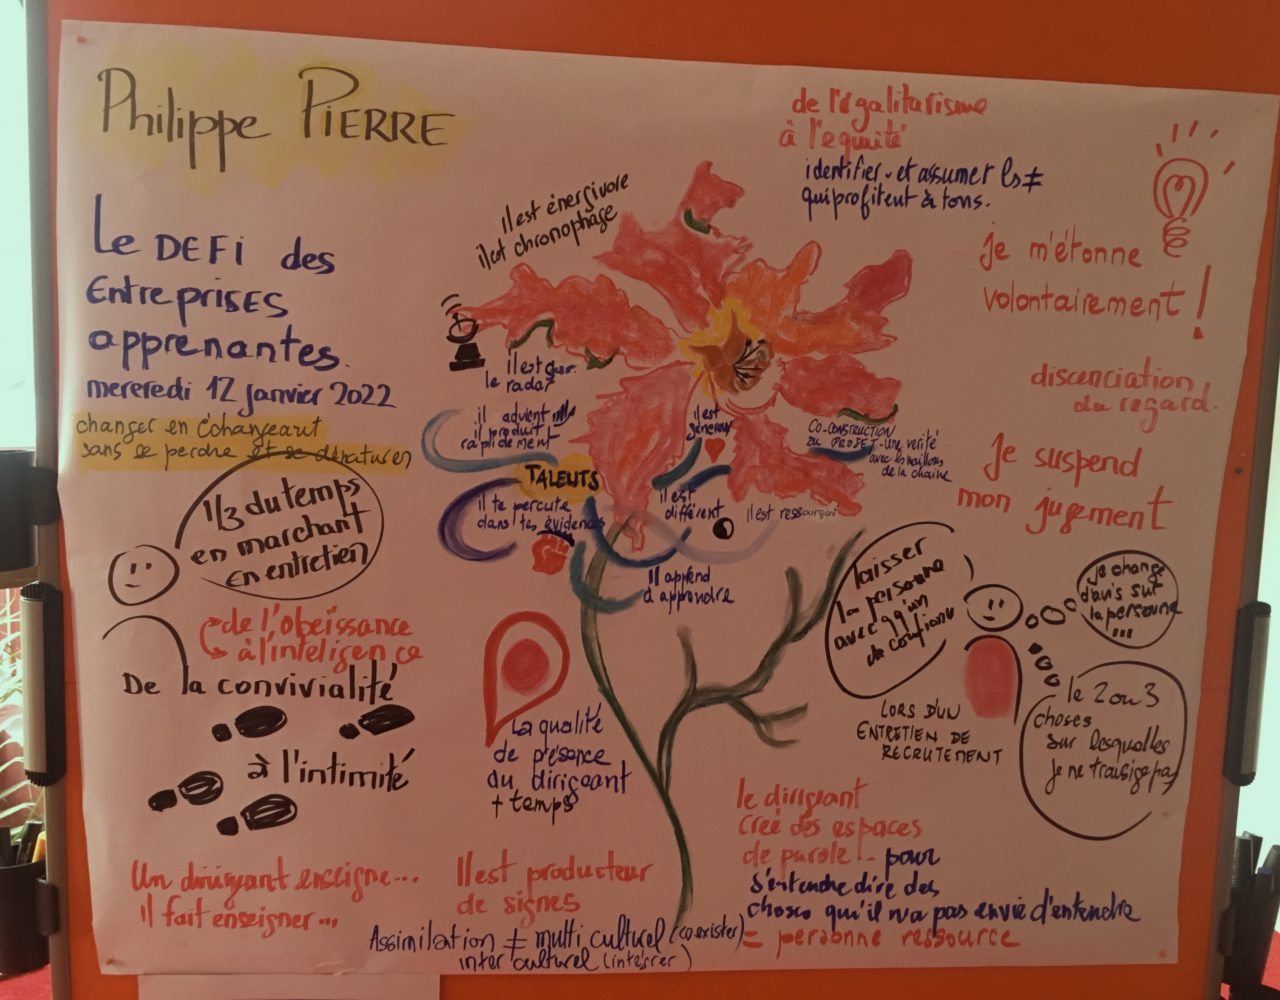 Philippe PIERRE
Le DEFi des
Entreprises
apprenantes.
mercredi 12 janvier 2022
changer en échangeant
sans se perdre et se dénaturer
1/3 du temps
en marchant
en entretien
de l'obeïssance
à l'inteligence
De la convivialité
à l'intimité
Un dirigeant enseigne...
Il fait enseigner...
Il est énergivore
il est chronophage
il est
le radar
il advient
il produit
rapidement
TALENTS
il te percute
dans tes évidences
il est
généreux
il est
différent
il est ressourçant
Il apprend
à apprendre
CO-CONSTRUCTION
DU PROJET-une verité
avec les maillons
de la chaine
La qualité
de présence
du dirigeant
+ temps
Il est producteur
de signes
Assimilation ≠ multi culturel (coexister)
inter culturel (intégrer)
de l'égalitarisme
à l'equité
identifier et assumer les ≠
qui profitent à tous.
je m'étonne
volontairement !
discenciation
du regard.
Je suspend
mon jugement
laisser
la personne
avec qq'un
de confiance
je change
d'avis sur
la personne
...
LORS D'UN
ENTRETIEN DE
RECRUTEMENT
le 2 ou 3
choses
sur lesquelles
je ne transige pas
le dirigeant
creé des espaces
de parole - pour
s'entendre dire des
choses qu'il n'a pas envie d'entendre
= personne ressource